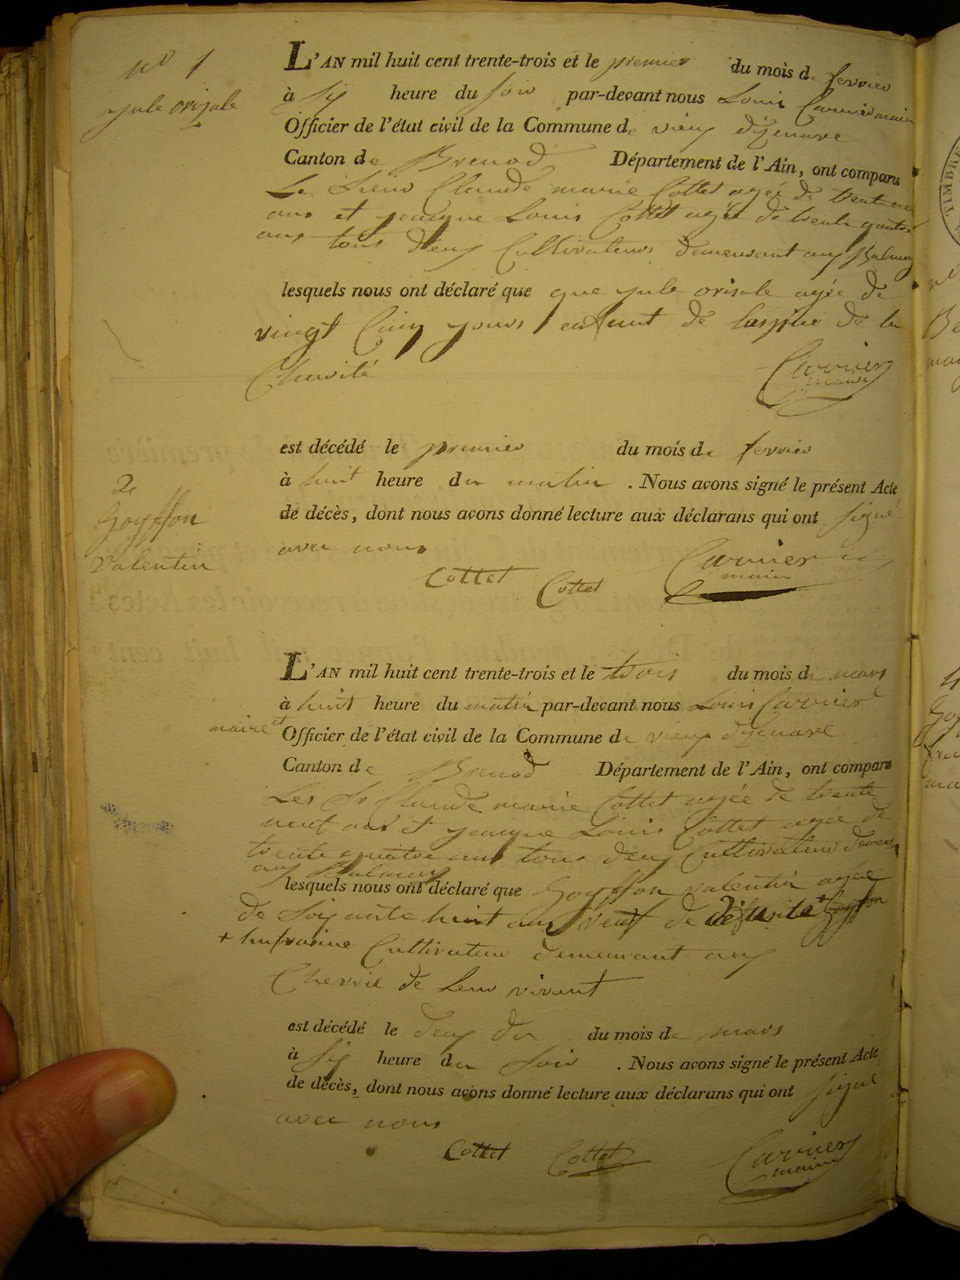 n° 1
yule orisale
L'AN mil huit cent trente-trois et le premier du mois de fevrier
à six heure du soir par-devant nous Louis Carrier maire
Officier de l'état civil de la Commune de vieux d'izenave
Canton de Brenod Département de l'Ain, ont comparu
Le Sieur Claude marie Cottet agée de trente
ans et jeacque Louis Cottet agée de trente quatre
ans tous deux Cultivateurs demeurant aux Balmay
lesquels nous ont déclaré que que yule orisale agée de
vingt Cinq yours enfant de laspice de la
Cherité
Carrier
maire
est décédé le premier du mois de fevrier
à huit heure du matin . Nous avons signé le présent Acte
de décès, dont nous avons donné lecture aux déclarans qui ont signé
avec nous
Cottet Cottet Carrier
maire
2e
Goyffon
valentin
L'AN mil huit cent trente-trois et le trois du mois de mars
à huit heure du matin par-devant nous Louis Carrier
maire et Officier de l'état civil de la Commune de vieux d'izenave
Canton de Brenod Département de l'Ain, ont comparu
Les Sr Claude marie Cottet agée de trente
neuf ans et jeacque Louis Cottet agée de
trente quatre ans tous deux Cultivateurs
aux Balmay
lesquels nous ont déclaré que Goyffon valentin agée
de soixante huit ans veuf de defunte
+ Cultivateur demeurant aux
Chevril de Leur vivant
est décédé le deux du du mois de mars
à six heure du soir . Nous avons signé le présent Acte
de décès, dont nous avons donné lecture aux déclarans qui ont signé
avec nous
Cottet Cottet Carrier
maire
TIMBRE